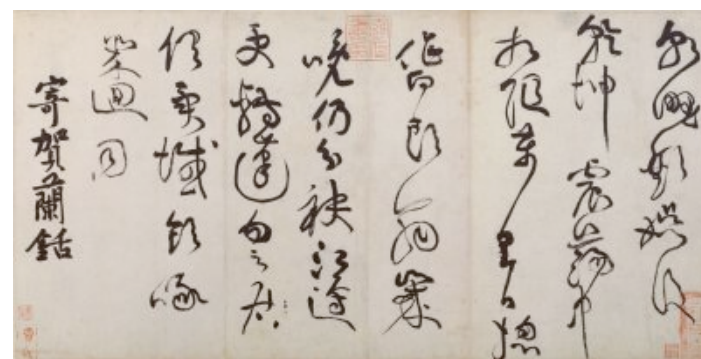 朝野歡娛後
乾坤震蕩中
相隨萬里日總
作白頭翁歲
晚仍分袂江邊
更轉蓬勿言居
俱異域飲啄
幾迴同
寄賀蘭銛